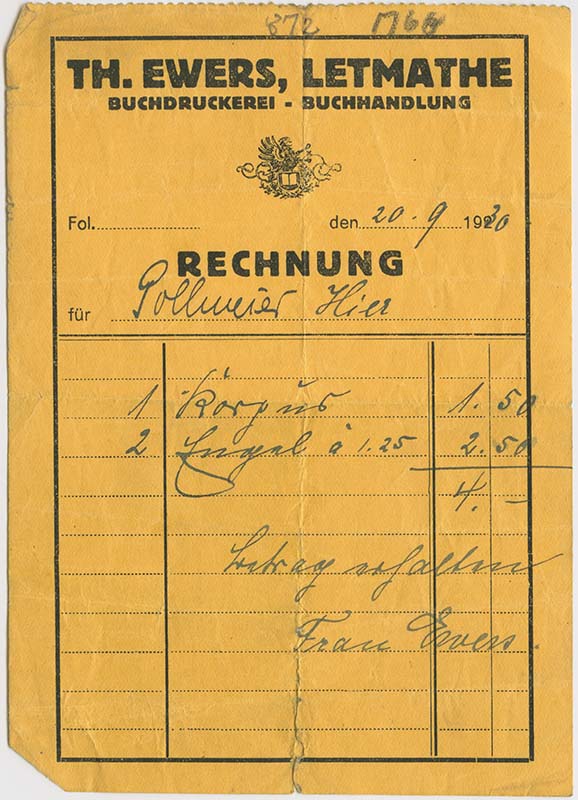 872 1766
TH. EWERS, LETMATHE
BUCHDRUCKEREI - BUCHHANDLUNG
Fol. den 20.9 1930
RECHNUNG
für Pollmeier Hier
1 Körpus 1.50
2 Engel à 1.25 2.50
4.–
Betrag erhalten
Frau Ewers.